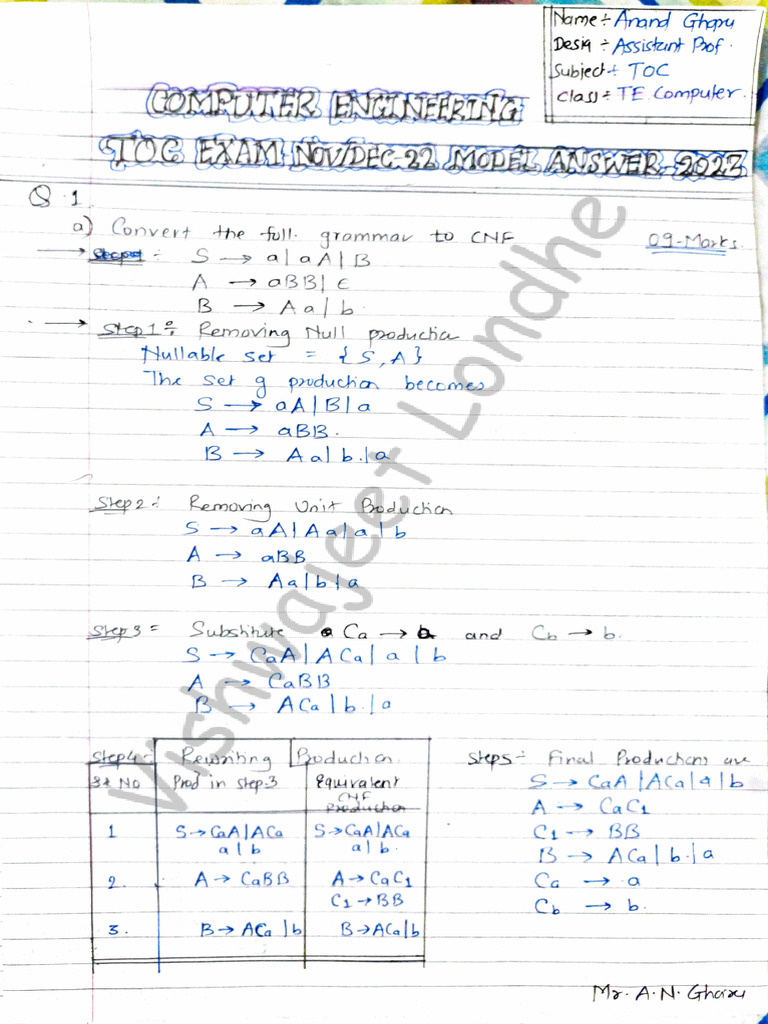 Name ÷ Anand Gharu
Desig ÷ Assistant Prof.
Subject ÷ TOC
Class ÷ TE Computer.
COMPUTER ENGINEERING
TOC EXAM NOV/DEC-22 MODEL ANSWER-2023
Q.1
a) Convert the foll. grammar to CNF 09-Marks.
→ S → a | aA | B
A → aBB | ε
B → Aa | b.
→ Step 1 : Removing Null production
Nullable set = {S, A}
The set of production becomes
S → aA | B | a
A → aBB.
B → Aa | b. | a
Step 2 : Removing Unit Production
S → aA | Aa | a | b
A → aBB
B → Aa | b | a
Step 3 = Substitute Ca → a and Cb → b.
S → CaA | ACa | a | b
A → CaBB
B → ACa | b. | a
Step 4 : Rewriting Production
Sr No Prod in step-3 Equivalent CNF production
1 S → CaA | ACa a | b S → CaA | ACa a | b.
2. A → CaBB A → CaC1 C1 → BB
3. B → ACa | b B → ACa | b
Step 5 ÷ Final Productions are
S → CaA | ACa | a | b
A → CaC1
C1 → BB
B → ACa | b. | a
Ca → a
Cb → b.
Mr. A.N. Gharu
Vishwajeet Londhe